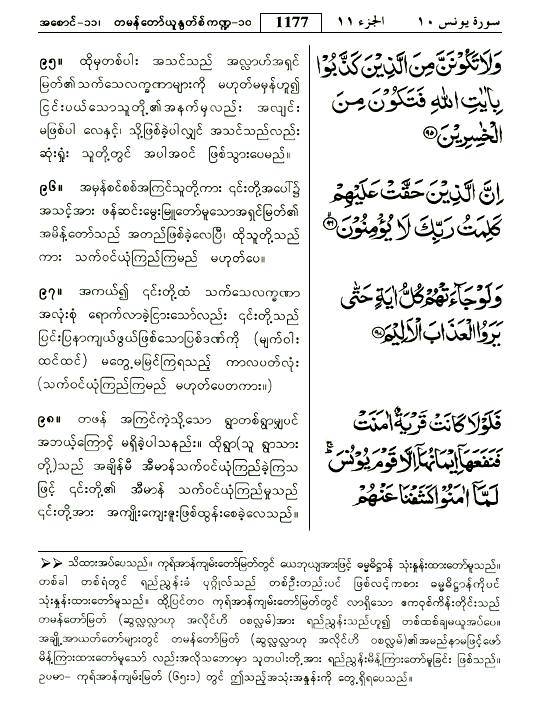 အစောင်-၁၁၊ တမန်တော်ယူနွတ်စ်ကဏ္ဍ-၁၀ 1177 الجزء ١١ سورة يونس ١٠
၉၅။ ထိုမှတစ်ပါး အသင်သည် အလ္လာဟ်အရှင်
မြတ်၏သက်သေလက္ခဏာများကို မဟုတ်မမှန်ဟူ၍
ငြင်းပယ်သောသူတို့၏အနက်မှလည်း အလျင်း
မဖြစ်ပါ လေနှင့်၊ သို့ဖြစ်ခဲ့ပါလျှင် အသင်သည်လည်း
ဆုံးရှုံး သူတို့တွင် အပါအဝင် ဖြစ်သွားပေမည်။
وَلَا تَكُونَنَّ مِنَ الَّذِينَ كَذَّبُوا
بِاٰيٰتِ اللّٰهِ فَتَكُونَ مِنَ
الْخٰسِرِينَ ۹۵
၉၆။ အမှန်စင်စစ်အကြင်သူတို့ကား ၎င်းတို့အပေါ်၌
အသင့်အား ဖန်ဆင်းမွေးမြူတော်မူသောအရှင်မြတ်၏
အမိန့်တော်သည် အတည်ဖြစ်ခဲ့လေပြီ၊ ထိုသူတို့သည်
ကား သက်ဝင်ယုံကြည်ကြမည် မဟုတ်ပေ။
اِنَّ الَّذِينَ حَقَّتْ عَلَيْهِمْ
كَلِمَتُ رَبِّكَ لَا يُؤْمِنُونَ ۹۶
၉၇။ အကယ်၍ ၎င်းတို့ထံ သက်သေလက္ခဏာ
အလုံးစုံ ရောက်လာခဲ့ငြားသော်လည်း ၎င်းတို့သည်
ပြင်းပြနာကျယ်ဖွယ်ဖြစ်သောပြစ်ဒဏ်ကို (မျက်ဝါး
ထင်ထင်) မတွေ့မမြင်ကြရသည့် ကာလပတ်လုံး
(သက်ဝင်ယုံကြည်ကြမည် မဟုတ်ပေတကား။)
وَلَوْ جَآءَتْهُمْ كُلُّ اٰيَةٍ حَتّٰى
يَرَوُا الْعَذَابَ الْاَلِيْمَ ۹۷
၉၈။ တဖန် အကြင်ကဲ့သို့သော ရွာတစ်ရွာမျှပင်
အဘယ့်ကြောင့် မရှိခဲ့ပါသနည်း။ ထိုရွာ(သူ ရွာသား
တို့)သည် အချိန်မီ အီမာန်သက်ဝင်ယုံကြည်ခဲ့ကြသ
ဖြင့် ၎င်းတို့၏ အီမာန် သက်ဝင်ယုံကြည်မှုသည်
၎င်းတို့အား အကျိုးကျေးဇူးဖြစ်ထွန်းစေခဲ့လေသည်။
فَلَوْلَا كَانَتْ قَرْيَةٌ اٰمَنَتْ
فَنَفَعَهَآ اِيْمَانُهَآ اِلَّا قَوْمَ يُوْنُسَ
لَمَّآ اٰمَنُوْا كَشَفْنَا عَنْهُمْ
➤➤ သိထားအပ်ပေသည်။ ကုရ်အာန်ကျမ်းတော်မြတ်တွင် ယေဘုယျအားဖြင့် ဓမ္မဓိဋ္ဌာန် သုံးနှုန်းထားတော်မူသည်။
တစ်ခါ တစ်ရံတွင် ရည်ညွှန်းခံ ပုဂ္ဂိုလ်သည် တစ်ဦးတည်းပင် ဖြစ်လင့်ကစား ဓမ္မဓိဋ္ဌာန်ကိုပင်
သုံးနှုန်းထားတော်မူသည်။ ထို့ပြင်တဝ ကုရ်အာန်ကျမ်းတော်မြတ်တွင် လာရှိသော ဧကဝုစ်ကိန်းတိုင်းသည်
တမန်တော်မြတ် (ဆွလ္လလ္လာဟု အလိုင်ဟိ ဝစလ္လမ်)အား ရည်ညွှန်းသည်ဟူ၍ တစ်ထစ်ချမယူအပ်ပေ။
အချို့အာယတ်တော်များတွင် တမန်တော်မြတ် (ဆွလ္လလ္လာဟု အလိုင်ဟိ ဝစလ္လမ်)၏အမည်နာမဖြင့်ဖော်
မိန့်ကြားထားတော်မူသော် လည်းအလိုသဘောမှာ သူတပါးတို့အား ရည်ညွှန်းမိန့်ကြားတော်မူခြင်း ဖြစ်သည်။
ဥပမာ- ကုရ်အာန်ကျမ်းမြတ် (၆၅:၁) တွင် ဤသည့်အသုံးအနှုန်းကို တွေ့ရှိရပေသည်။